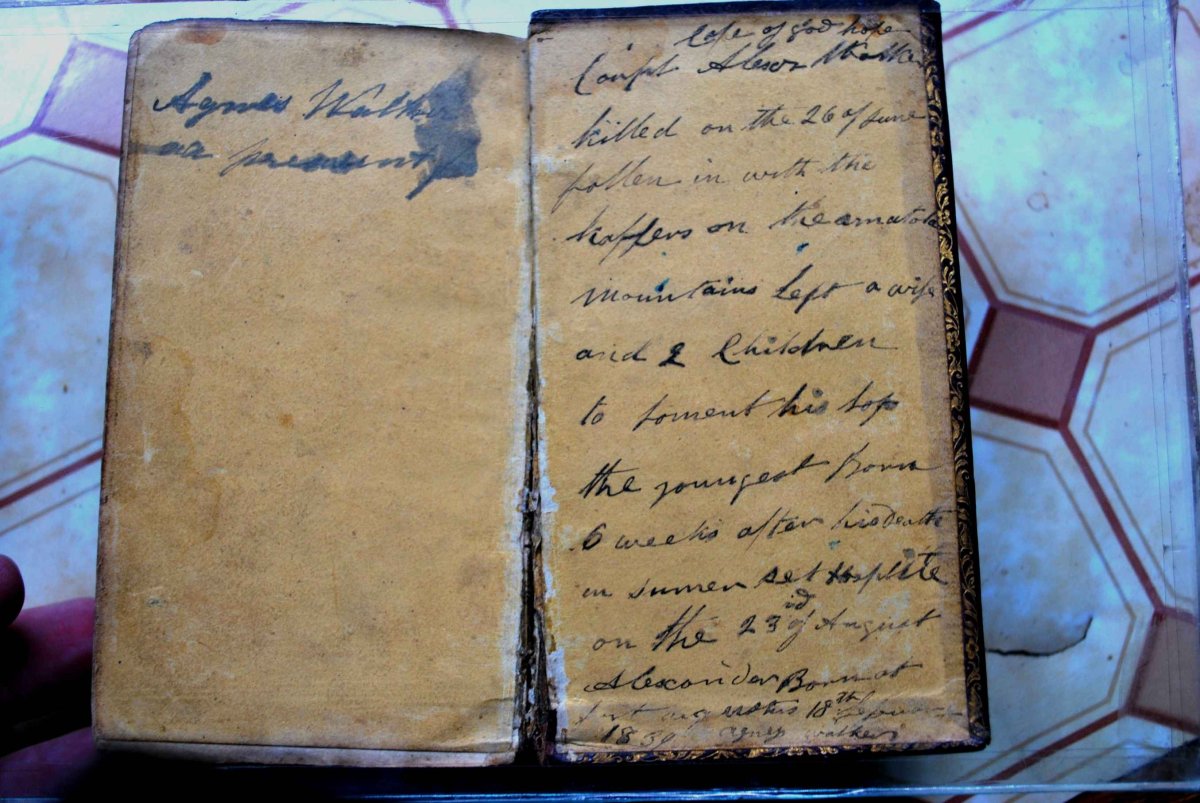 Agnes Walker
aa presint
Cape of god hope
Corpl Alexr Walker
killed on the 26 of June
follen in with the
kaffers on the amatola
mountains Left a wife
and 2 Children
to loment his loss
the youngest Born
6 weeks after his Death
in sumer set Hosplite
on the 23 rd of August
Alexander Born at
fort augustus 18th
1850 agnes walker